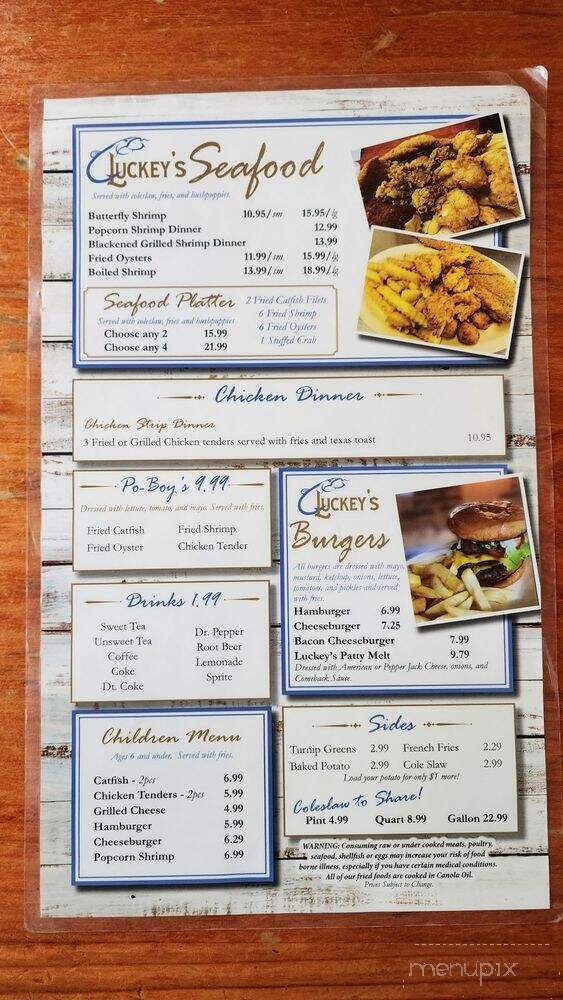 LUCKEY'S Seafood
Served with coleslaw, fries, and hushpuppies.
Butterfly Shrimp 10.95/sm 15.95/lg
Popcorn Shrimp Dinner 12.99
Blackened Grilled Shrimp Dinner 13.99
Fried Oysters 11.99/sm 15.99/lg
Boiled Shrimp 13.99/sm 18.99/lg
Seafood Platter
Served with coleslaw, fries and hushpuppies
Choose any 2 15.99
Choose any 4 21.99
2 Fried Catfish Filets
6 Fried Shrimp
6 Fried Oysters
1 Stuffed Crab
Chicken Dinner
Chicken Strip Dinner
3 Fried or Grilled Chicken tenders served with fries and texas toast 10.95
Po-Boy's 9.99
Dressed with lettuce, tomato, and mayo. Served with fries.
Fried Catfish Fried Shrimp
Fried Oyster Chicken Tender
Drinks 1.99
Sweet Tea
Unsweet Tea
Coffee
Coke
Dt. Coke
Dr. Pepper
Root Beer
Lemonade
Sprite
Children Menu
Ages 6 and under. Served with fries.
Catfish - 2pcs 6.99
Chicken Tenders - 2pcs 5.99
Grilled Cheese 4.99
Hamburger 5.99
Cheeseburger 6.29
Popcorn Shrimp 6.99
LUCKEY'S
Burgers
All burgers are dressed with mayo,
mustard, ketchup, onions, lettuce,
tomatoes, and pickles and served
with fries.
Hamburger 6.99
Cheeseburger 7.25
Bacon Cheeseburger 7.99
Luckey's Patty Melt 9.79
Dressed with American or Pepper Jack Cheese, onions, and
Comeback Sauce.
Sides
Turnip Greens 2.99 French Fries 2.29
Baked Potato 2.99 Cole Slaw 2.99
Load your potato for only $1 more!
Coleslaw to Share!
Pint 4.99 Quart 8.99 Gallon 22.99
WARNING: Consuming raw or under cooked meats, poultry,
seafood, shellfish or eggs may increase your risk of food
borne illness, especially if you have certain medical conditions.
All of our fried foods are cooked in Canola Oil.
Prices Subject to Change.
menupix